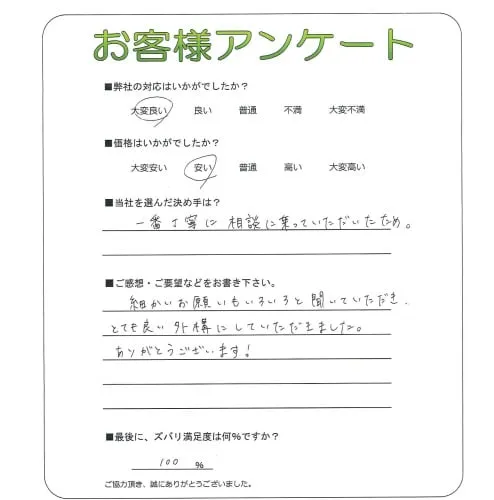 お客様アンケート
■弊社の対応はいかがでしたか？
大変良い 良い 普通 不満 大変不満
■価格はいかがでしたか？
大変安い 安い 普通 高い 大変高い
■当社を選んだ決め手は？
一番丁寧に相談に乗っていただいたため。
■ご感想・ご要望などをお書き下さい。
細かいお願いもいろいろと聞いていただき、
とても良い外構にしていただきました。
ありがとうございます！
■最後に、ズバリ満足度は何%ですか？
100 %
ご協力頂き、誠にありがとうございました。